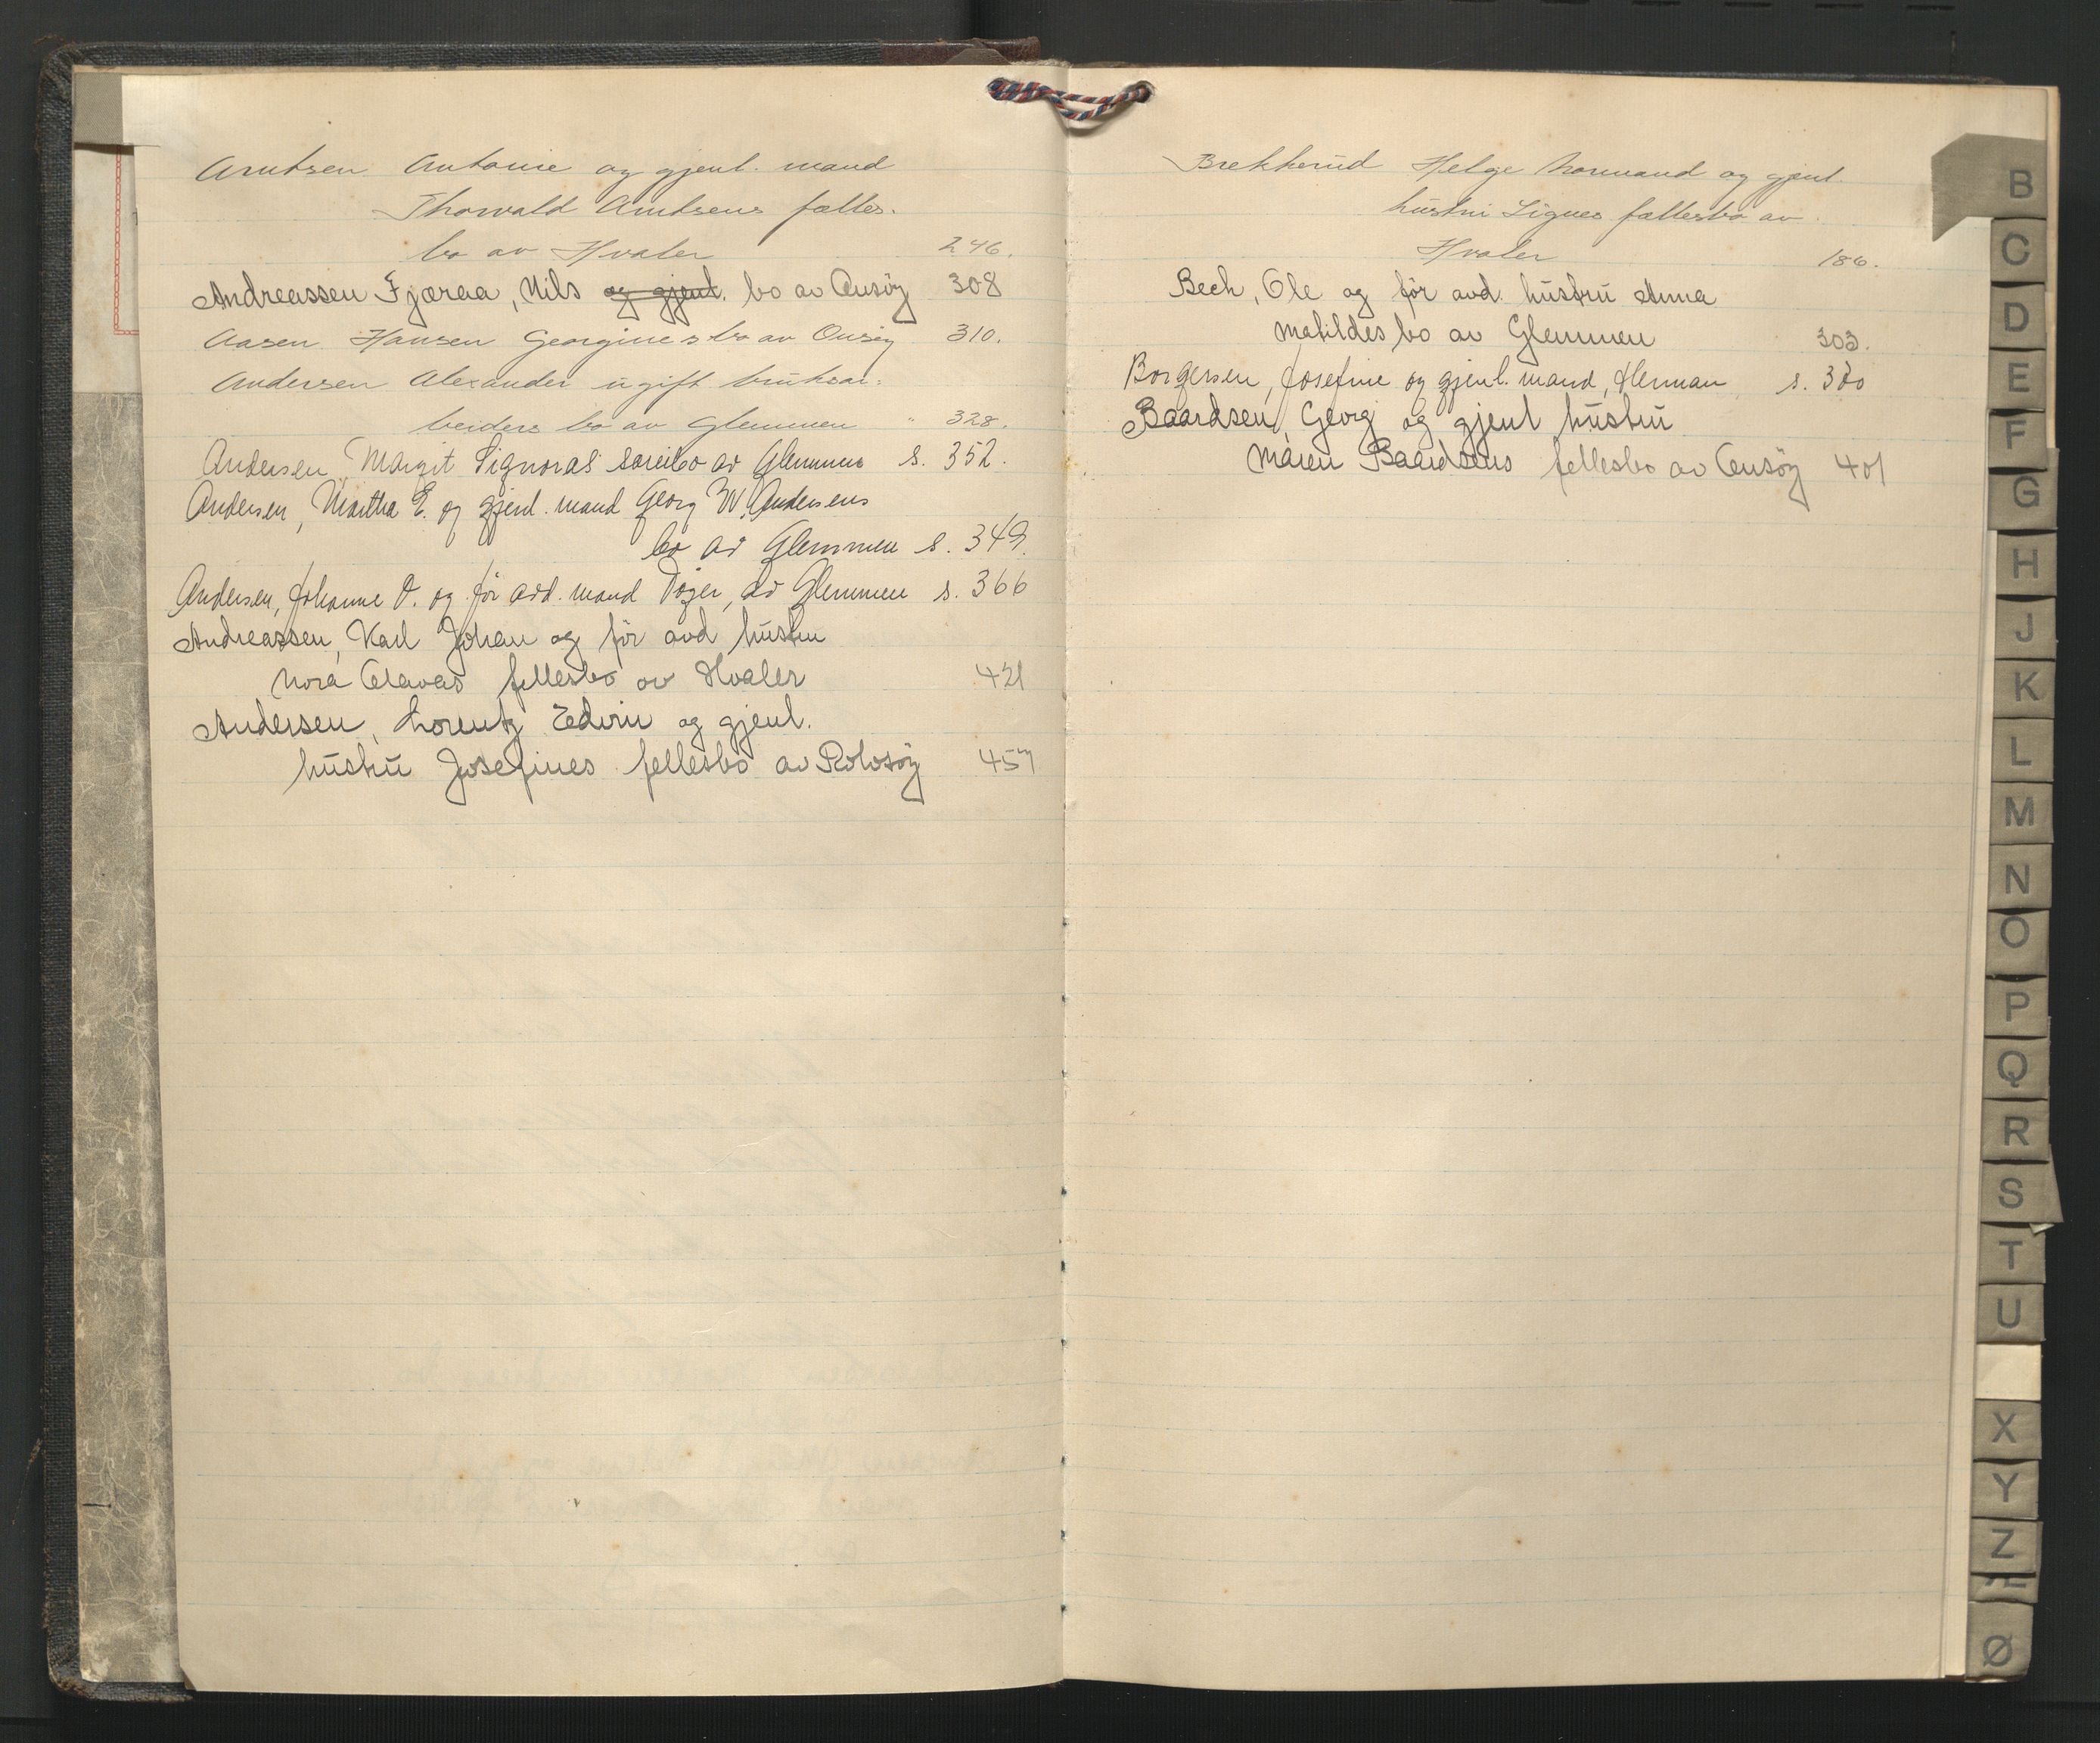 Arntsen Antonie og gjenl. mand
Thorvald Arntsens fælles-
bo av Hvaler 246.
Andreassen Fjæraa, Nils og gjenl. bo av Onsöy 308
Aasen Hansen Georgines bo av Onsöy 310.
Andersen Alexander ugift bruksar-
beiders bo av Glemmen " 328.
Andersen, Margit Signoras særeibo av Glemmen s. 352.
Andersen, Martha E. og gjenl. mand Georg W. Andersens
bo av Glemmen s. 349.
Andersen, Johanne O. og för avd. mand, av Glemmen s. 366
Andreassen, Karl Johan og för avd hustru
Nora Olavas fellesbo av Hvaler 421
Andersen, Lorentz Edvin og gjenl.
hustru Josefines fellesbo av Rolvsöy 457
Brekkerud Helge Normand og gjenl.
hustru Signes fællesbo av
Hvaler 186.
Bech, Ole og för avd. hustru Anna
Matildes bo av Glemmen 303.
Borgersen, Josefine og gjenl. mand, Herman s.
Baardsen, Georg og gjenl hustru
Maren Baardsens fellesbo av Onsöy 401
B
C
D
E
F
G
H
J
K
L
M
N
O
P
Q
R
S
T
U
X
Y
Z
Ø